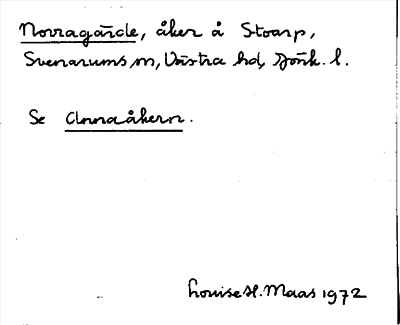 Norragärde, åker å Stoarp,
Svenarums sn, Västra hd, Jönk. l.
Se Annaåkern.
Louise H. Maas 1972